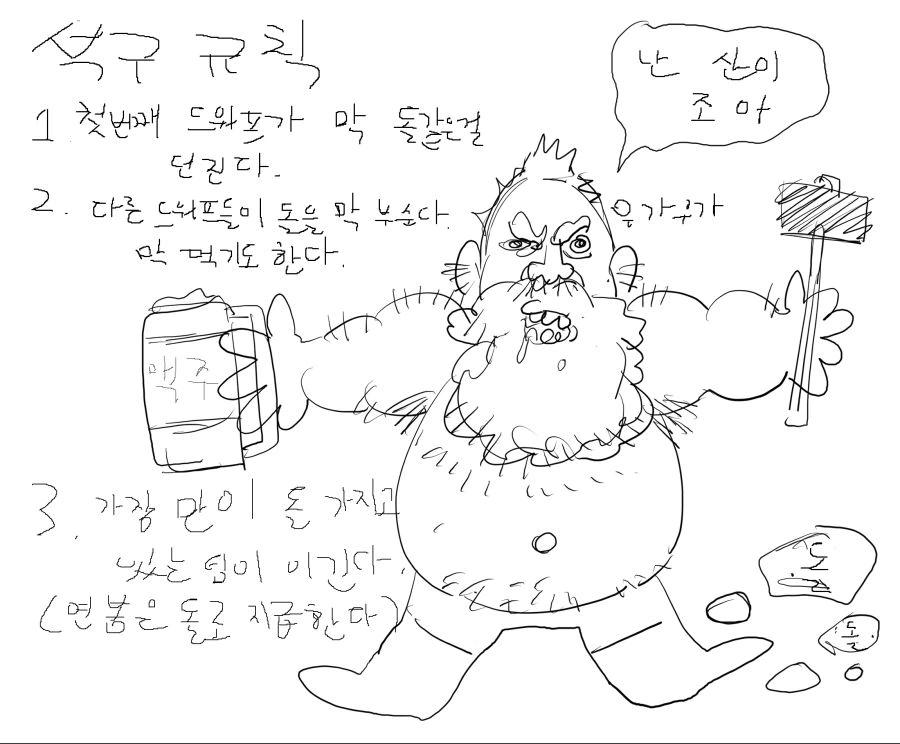 석구 규칙
1 첫번째 드워프가 막 돌같은걸
던진다.
2. 다른 드워프들이 돌을 막 부순다.
막 먹기도 한다.
난 산이
조아
우가우가
맥주
3. 가장 만이 돌 가지고
있는 팀이 이긴다.
(연봉은 돌로 지급한다)
돌
돌